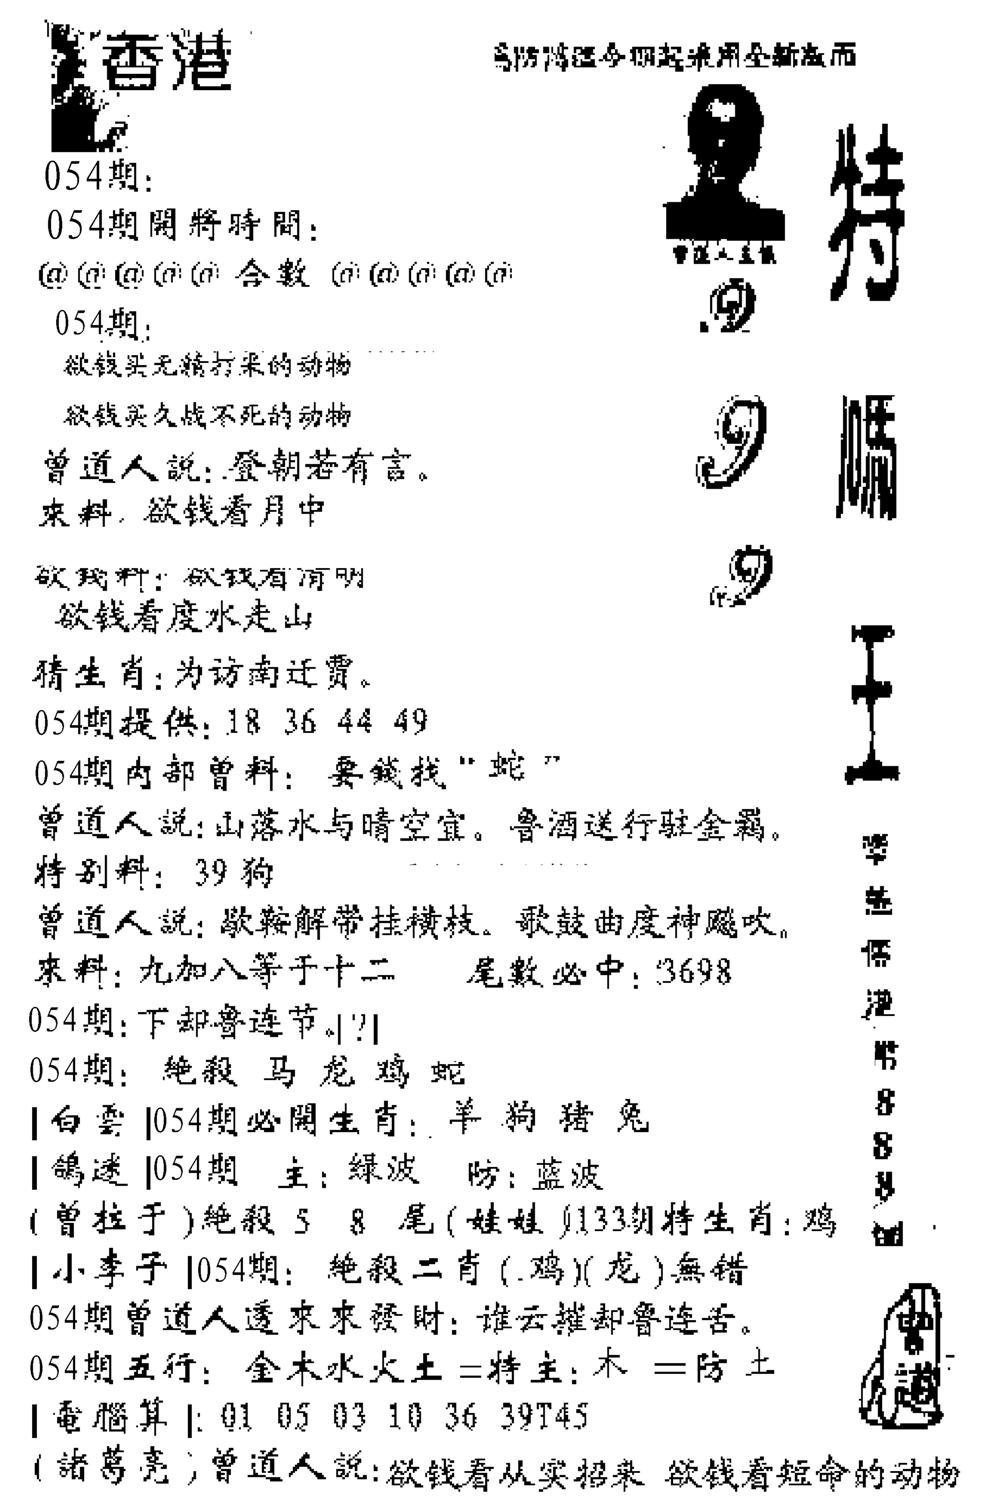 香港
054期:
054期開將時間:
@@@@@ 合數 @@@@@
054期:
欲钱买无精打采的动物
欲钱买久战不死的动物
曾道人説: 登朝若有言。
來料: 欲钱看月中
欲钱料: 欲钱看清明
欲钱看度水走山
猜生肖:为访南迁贾。
054期提供: 18 36 44 49
054期内部曾料: 要錢找“蛇”
曾道人説:山落水与晴空宜。鲁酒送行驻金羁。
特别料: 39 狗
曾道人説:歇鞍解带挂横枝。歌鼓曲度神飚吹。
來料:九加八等于十二 尾數必中: 3698
054期:下却鲁连节。|?|
054期: 絶殺 马 龙 鸡 蛇
|白雲|054期必開生肖: 羊 狗 猪 兔
|鴿迷|054期 主: 绿波 防: 蓝波
(曾拉于)絶殺 5 8 尾(娃娃)133期特生肖: 鸡
|小李子|054期: 絶殺二肖(鸡)(龙)無错
054期曾道人透來來發財: 谁云摧却鲁连舌。
054期五行: 金木水火土=特主: 木 =防 土
|電腦算|: 01 05 03 10 36 39T45
(諸葛亮)曾道人説:欲钱看从实招来 欲钱看短命的动物
9
9
9
特
王
8
8
8
曾道